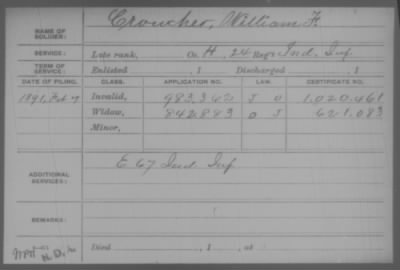 NAME OF SOLDIER: Croucher, William F.
SERVICE: Late rank, Co. H, 24 Reg't Ind. Inf.
TERM OF SERVICE: Enlisted , 1 Discharged , 1
DATE OF FILING. CLASS. APPLICATION NO. LAW. CERTIFICATE NO.
1891, Feb 7 Invalid, 983,362 J O 1,020,461
Widow, 842,883 O J 621,083
Minor,
ADDITIONAL SERVICES: E 67 Ind Inf
REMARKS:
Died , 1 , at